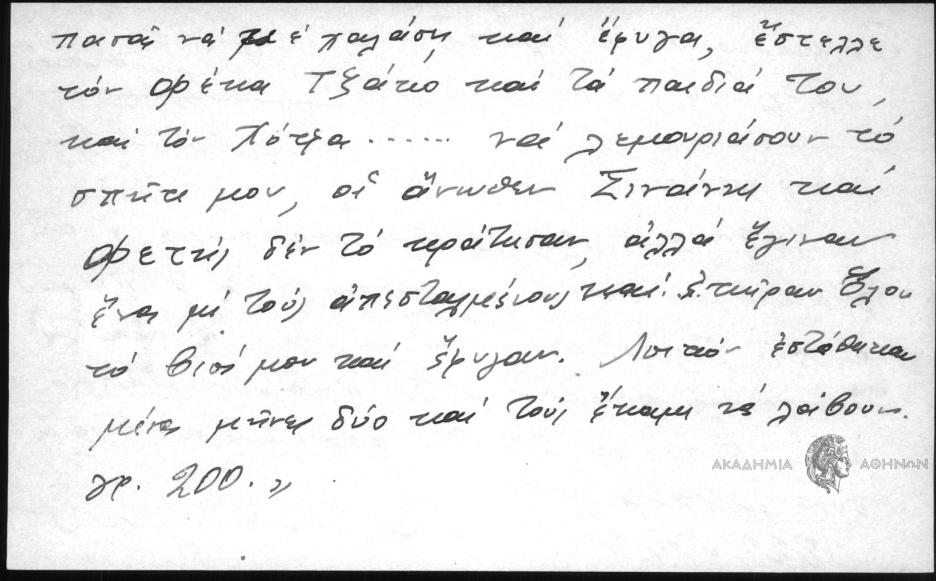 πασᾶς νά μέ χαλάση καί ἔφυγα, ἔστελλε
τόν Φέκα Τζάκο καί τά παιδιά του,
καί τόν Χότζα ...... νά λεμουριάσουν τό
σπήτι μου, οἱ ἄνωθεν Σινάνης καί
Φετής δέν τό κράτησαν, ἀλλά ἔγιναν
ἕνα μέ τούς ἀπεσταλμένους καί ἐπῆραν ὅλον
τό βιό μου καί ἔφυγαν. Λοιπόν ἐστάθηκαν
μῆνες δύο καί τούς ἔκαμε τά λάβουν.
γρ. 200.»
ΑΚΑΔΗΜΙΑ ΑΘΗΝΩΝ